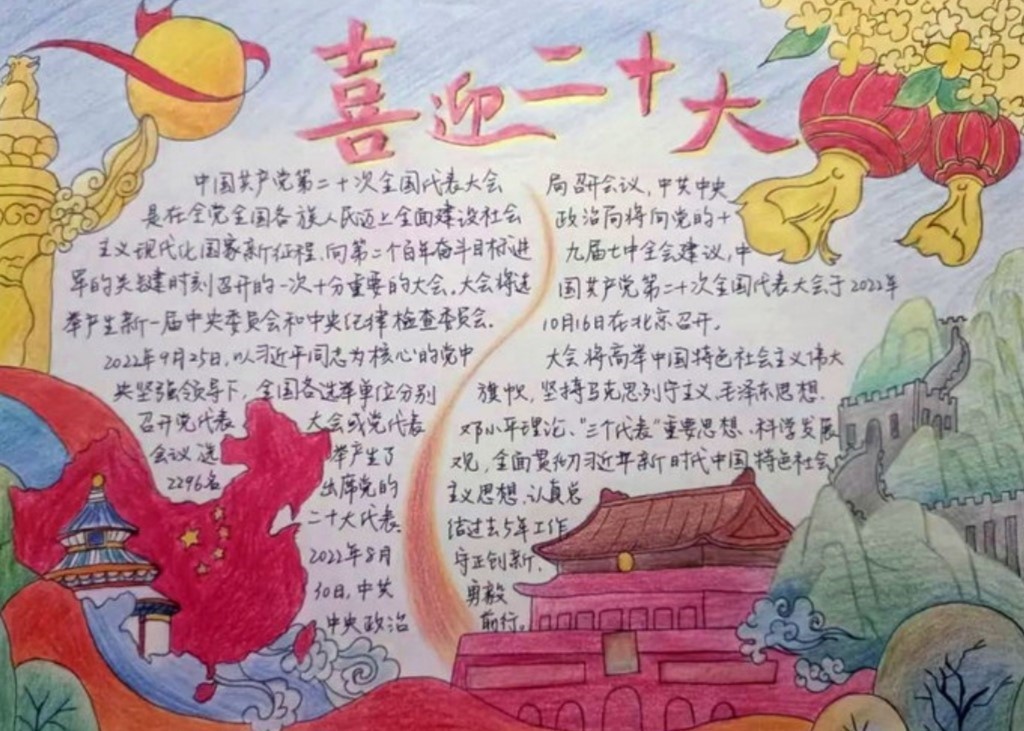 喜迎二十大
中国共产党第二十次全国代表大会
是在全党全国各族人民迈上全面建设社会
主义现代化国家新征程、向第二个百年奋斗目标进
军的关键时刻召开的一次十分重要的大会。大会将选
举产生新一届中央委员会和中央纪律检查委员会.
2022年9月25日,以习近平同志为核心的党中
央坚强领导下,全国各选举单位分别
召开党代表大会或党代表
会议,选举产生了
2296名出席党的
二十大代表.
2022年8月
30日,中共
中央政治
局召开会议,中共中央
政治局将向党的十
九届七中全会建议,中
国共产党第二十次全国代表大会于2022年
10月16日在北京召开.
大会将高举中国特色社会主义伟大
旗帜,坚持马克思列宁主义、毛泽东思想、
邓小平理论、"三个代表"重要思想、科学发展
观,全面贯彻习近平新时代中国特色社会
主义思想,认真总
结过去5年工作
守正创新、
勇毅
前行。